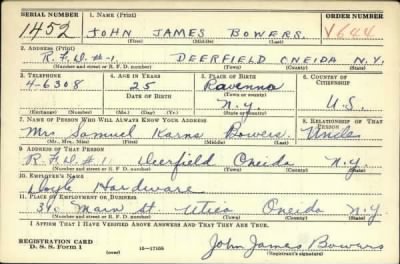 SERIAL NUMBER 1. NAME (Print) ORDER NUMBER
1452 JOHN JAMES BOWERS. V644
(First) (Middle) (Last)
2. ADDRESS (Print)
R.F.D.#-1. DEERFIELD ONEIDA N.Y.
(Number and street or R. F. D. number) (Town) (County) (State)
3. TELEPHONE 4. AGE IN YEARS 5. PLACE OF BIRTH 6. COUNTRY OF CITIZENSHIP
4-6308 25 Ravenna
DATE OF BIRTH (Town or county)
N.Y. U.S.
(Exchange) (Number) (Mo.) (Day) (Yr.) (State or country)
7. NAME OF PERSON WHO WILL ALWAYS KNOW YOUR ADDRESS 8. RELATIONSHIP OF THAT PERSON
Mrs Samuel Karns Bowers. Uncle
(Mr., Mrs., Miss) (First) (Middle) (Last)
9. ADDRESS OF THAT PERSON
R.F.D. #1 Deerfield Oneida N.Y.
(Number and street or R. F. D. number) (Town) (County) (State)
10. EMPLOYER'S NAME
Doyle Hardware
11. PLACE OF EMPLOYMENT OR BUSINESS
Main St Utica Oneida N.Y
(Number and street or R. F. D. number) (Town) (County) (State)
I AFFIRM THAT I HAVE VERIFIED ABOVE ANSWERS AND THAT THEY ARE TRUE.
REGISTRATION CARD
D. S. S. Form 1 (over) 16—17105 John James Bowers
(Registrant's signature)